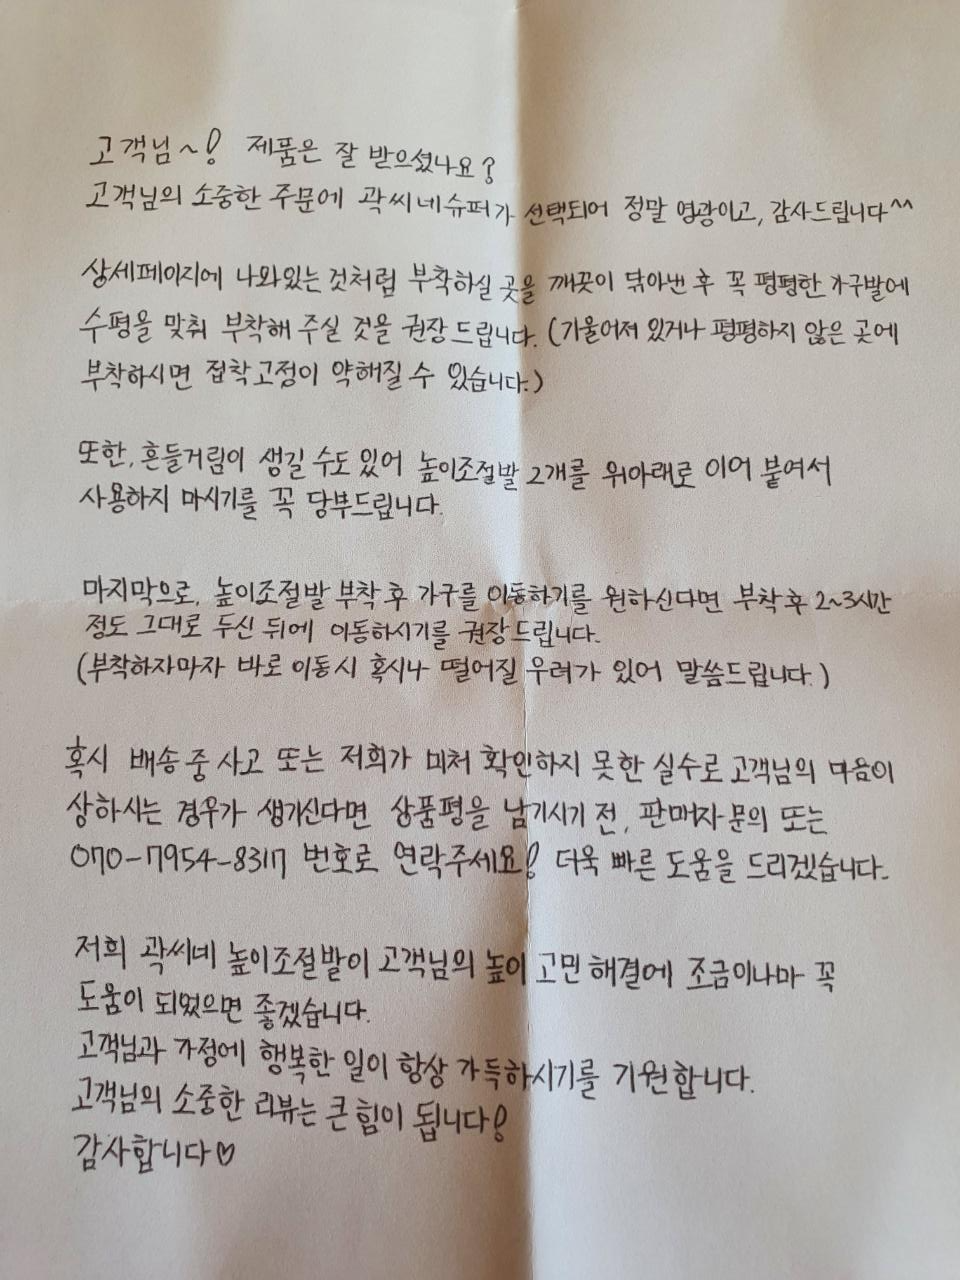 고객님~! 제품은 잘 받으셨나요?
고객님의 소중한 주문에 곽씨네슈퍼가 선택되어 정말 영광이고, 감사드립니다^^
상세페이지에 나와있는 것처럼 부착하실 곳을 깨끗이 닦아낸 후 꼭 평평한 가구발에
수평을 맞춰 부착해 주실 것을 권장드립니다. (기울어져 있거나 평평하지 않은 곳에
부착하시면 접착고정이 약해질 수 있습니다.)
또한, 흔들거림이 생길 수도 있어 높이조절발 2개를 위아래로 이어 붙여서
사용하지 마시기를 꼭 당부드립니다.
마지막으로, 높이조절발 부착 후 가구를 이동하기를 원하신다면 부착 후 2~3시간
정도 그대로 두신 뒤에 이동하시기를 권장드립니다.
(부착하자마자 바로 이동시 혹시나 떨어질 우려가 있어 말씀드립니다.)
혹시 배송 중 사고 또는 저희가 미처 확인하지 못한 실수로 고객님의 마음이
상하시는 경우가 생기신다면 상품평을 남기시기 전, 판매자문의 또는
070-7954-8317 번호로 연락주세요! 더욱 빠른 도움을 드리겠습니다.
저희 곽씨네 높이조절발이 고객님의 높이 고민 해결에 조금이나마 꼭
도움이 되었으면 좋겠습니다.
고객님과 가정에 행복한 일이 항상 가득하시기를 기원합니다.
고객님의 소중한 리뷰는 큰 힘이 됩니다!
감사합니다♡